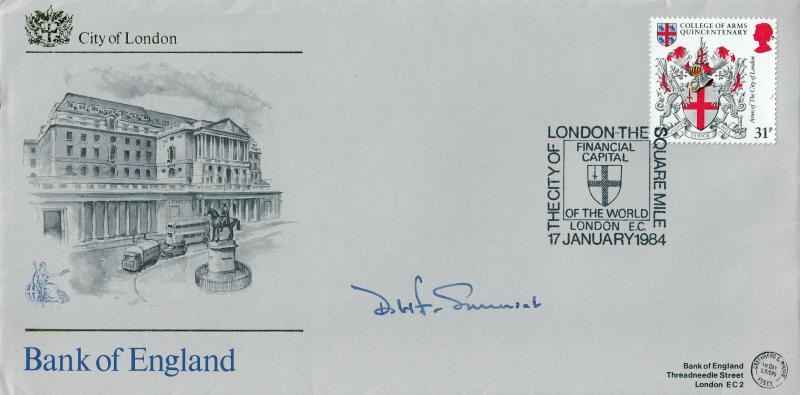 City of London
COLLEGE OF ARMS
QUINCENTENARY
Arms of The City of London
31P
THE CITY OF
LONDON-THE
SQUARE MILE
FINANCIAL
CAPITAL
OF THE WORLD
LONDON E.C.
17 JANUARY 1984
Bank of England
Bank of England
Threadneedle Street
London EC2